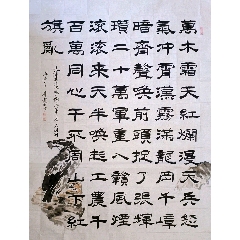 萬木霜天紅爛漫天兵
氣沖霄漢霧滿龍岡千嶂
暗齊聲喚前頭捉了張輝
瓚二十萬軍重入贛風煙
滾滾來天半喚起工農千
百萬同心干不周山下紅
旗亂